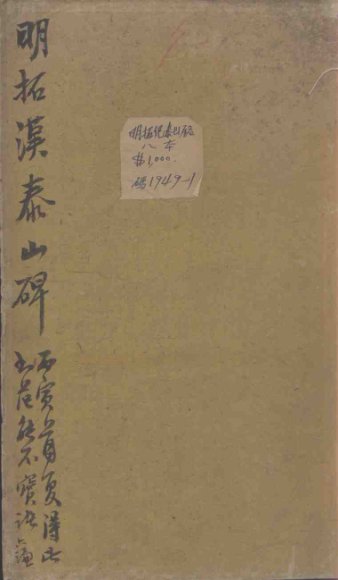 明拓漢泰山碑
丙寅首夏得此
不寶
明拓漢泰山碑
八本
$1,000.
碼1949-1